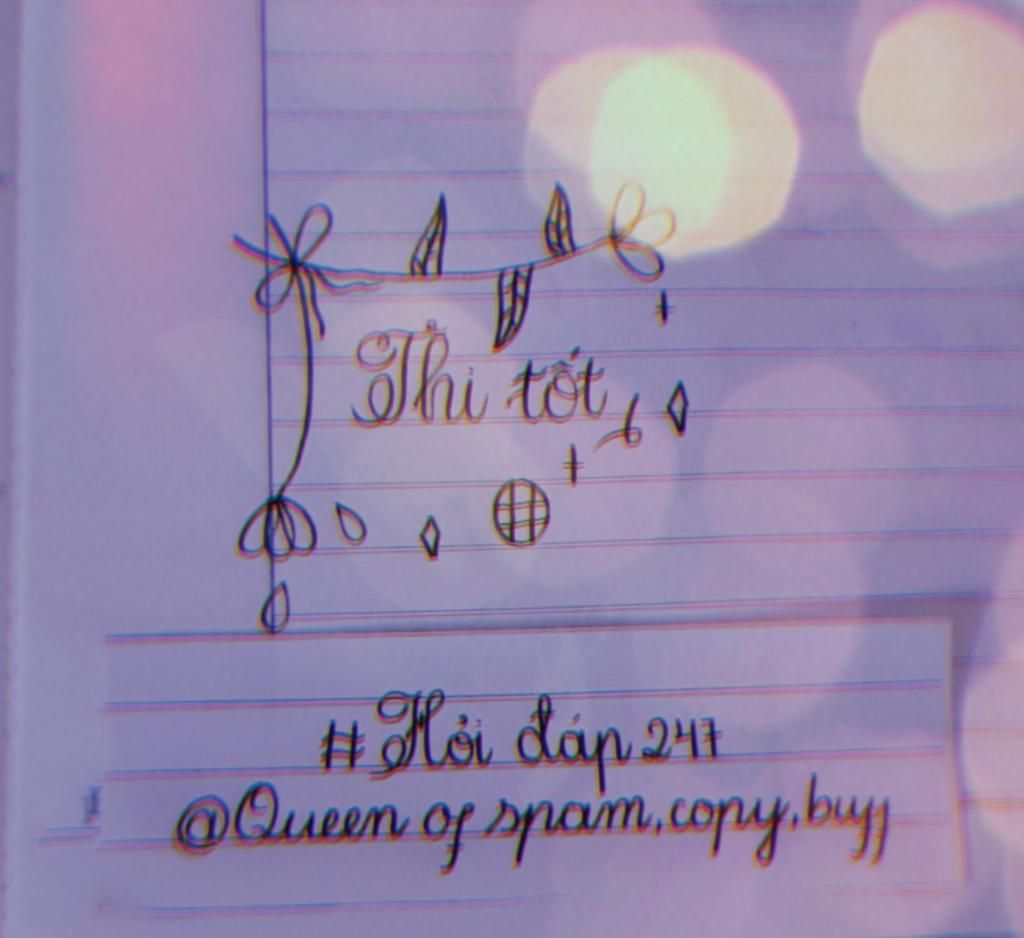 Thi tốt
#Hỏi đáp 247
@Queen of spam,copy,buff